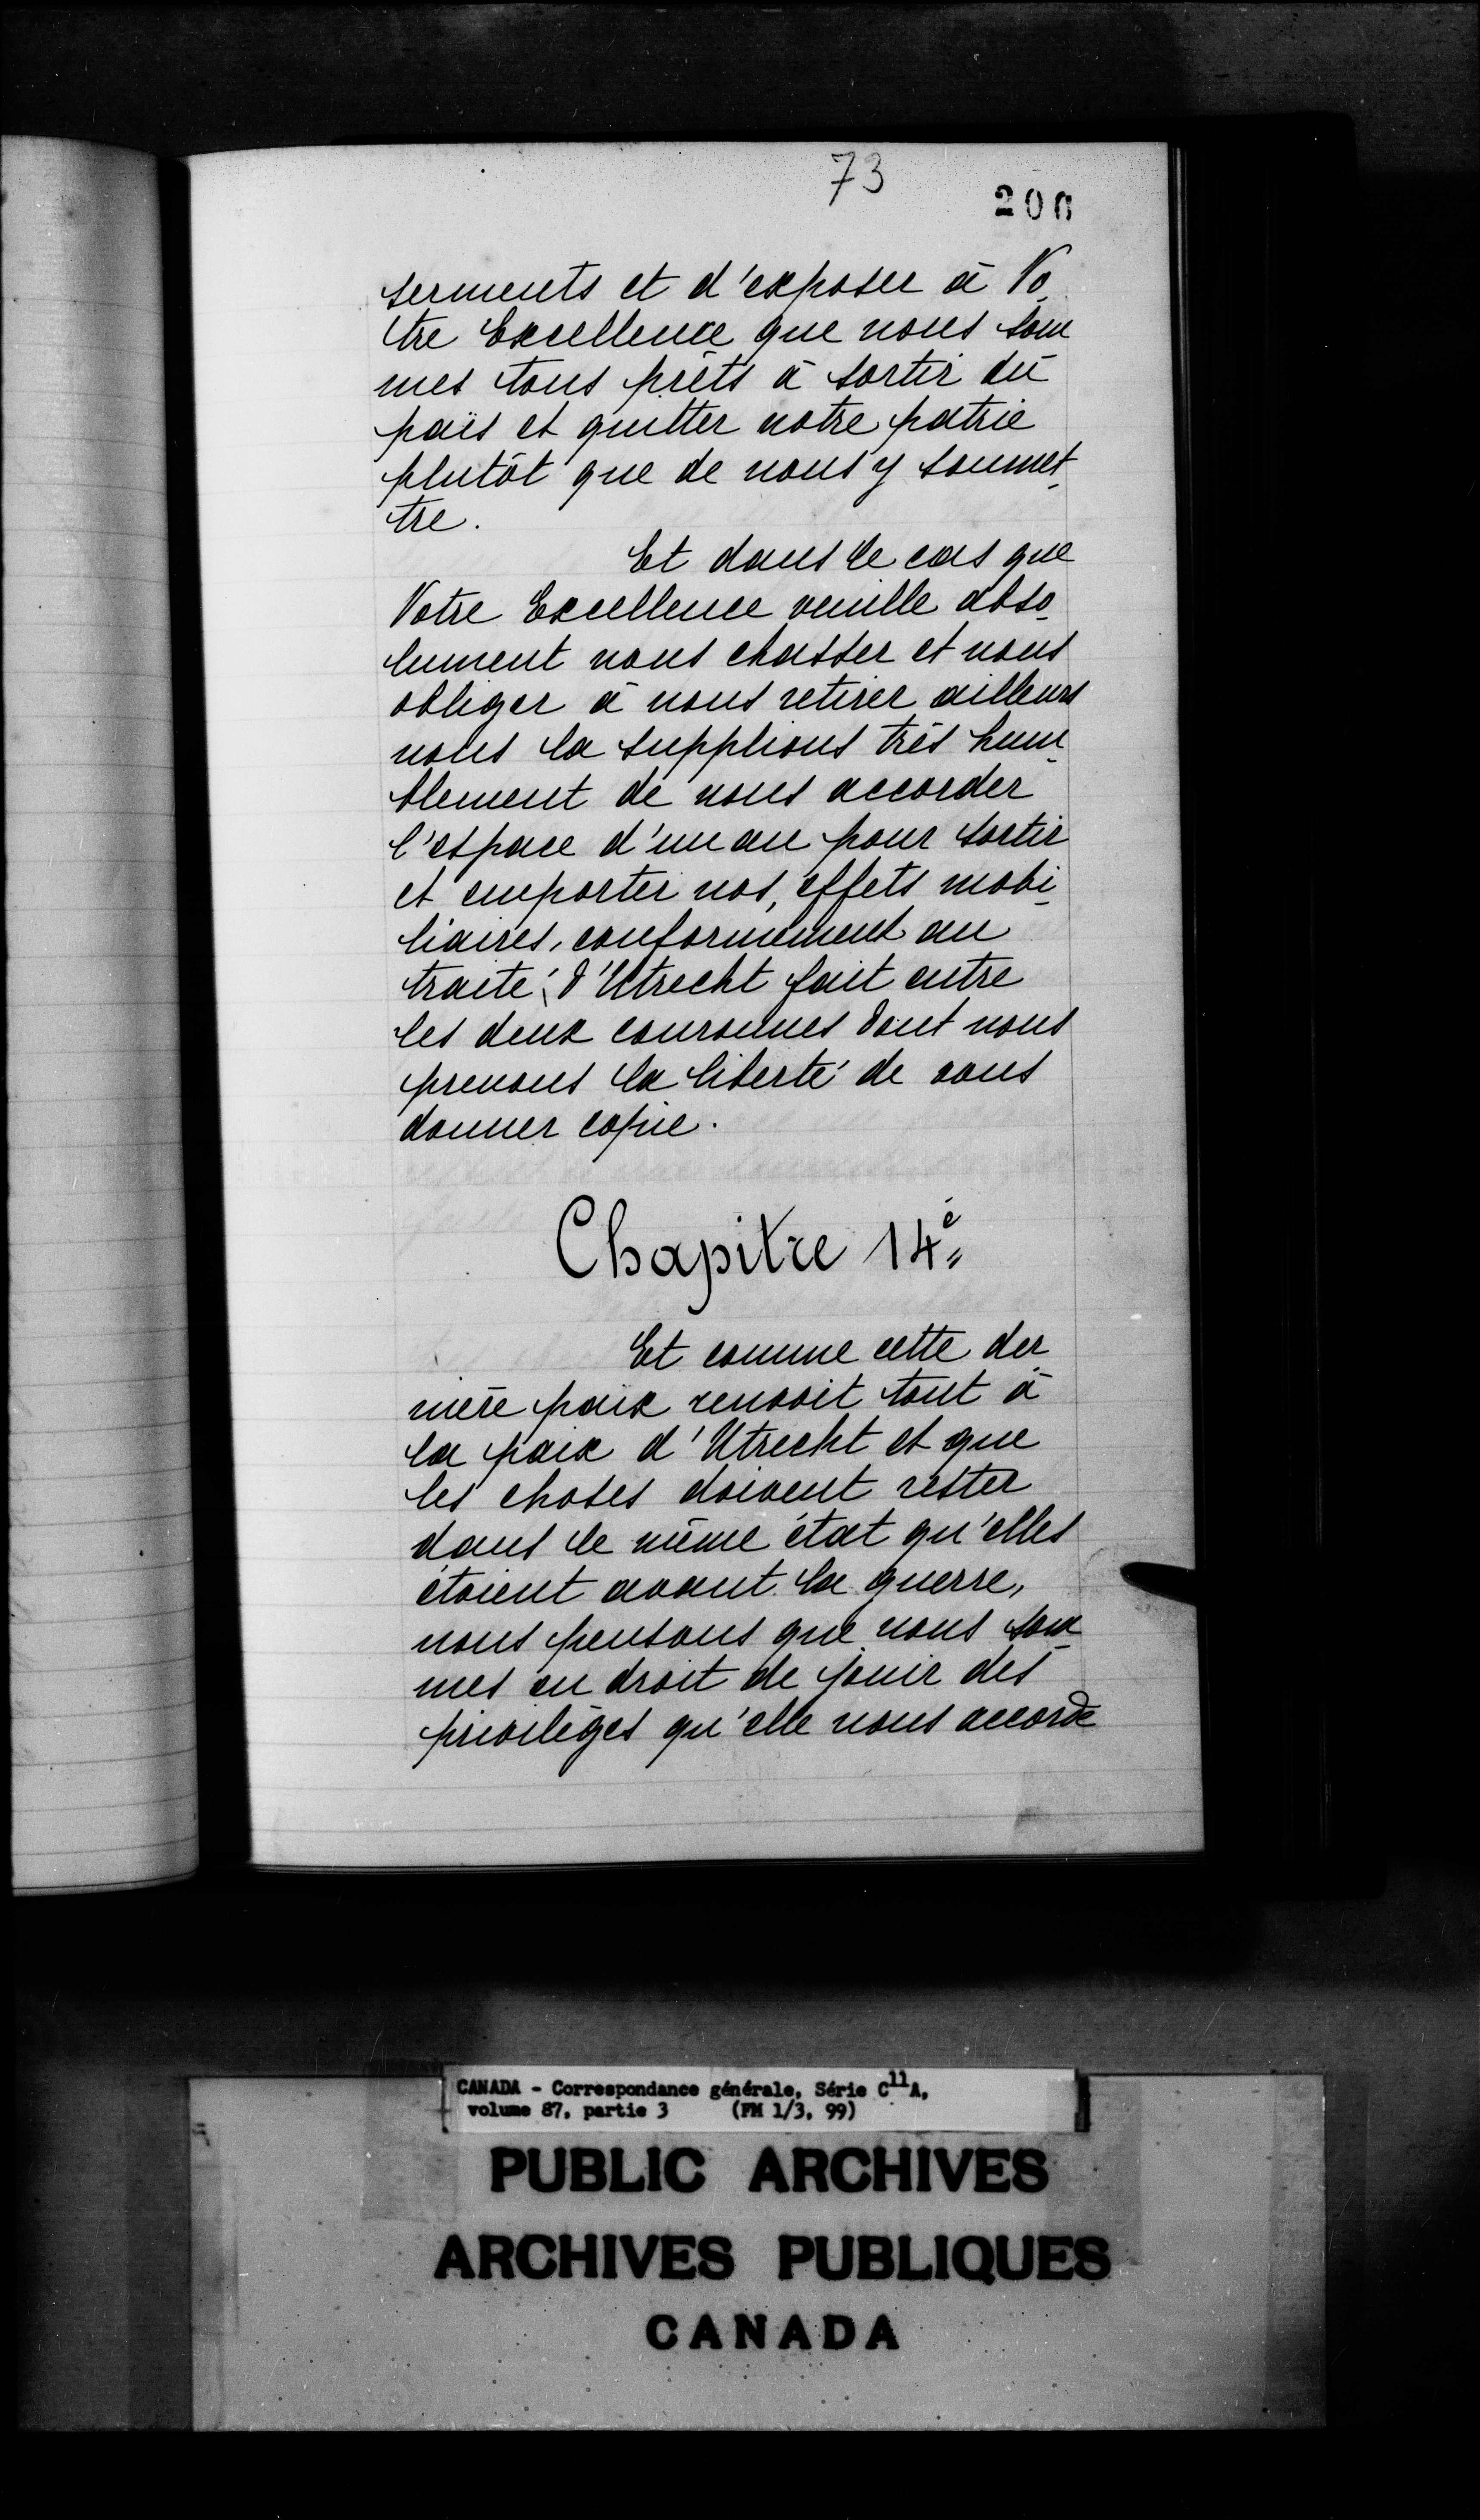 73
206
serments et d'exposer à Vo-
tre Excellence que nous som
mes tous prêts à sortir du
païs et quitter notre patrie
plutôt que de nous y soumet-
tre.
Et dans le cas que
Votre Excellence veuille abso-
lument nous chasser et nous
obliger à nous retirer ailleurs
nous la supplions très hum-
blement de nous accorder
l'espace d'un an pour sortir
et emporter nos, effets mobi-
liaires, conformément au
traité, d'Utrecht fait entre
les deux couronnes dont nous
prenons la liberté de vous
donner copie.
Chapitre 14è
Et comme cette der
nière paix renvoit tout à
la paix d'Utrecht et que
les choses doivent rester
dans le même état qu'elles
étoient avant la guerre,
nous pensons que nous som-
mes en droit de jouir des
privilèges qu'elle nous accorde
CANADA - Correspondance générale, Série C11A,
volume 87, partie 3 (FM 1/3, 99)
PUBLIC ARCHIVES
ARCHIVES PUBLIQUES
CANADA